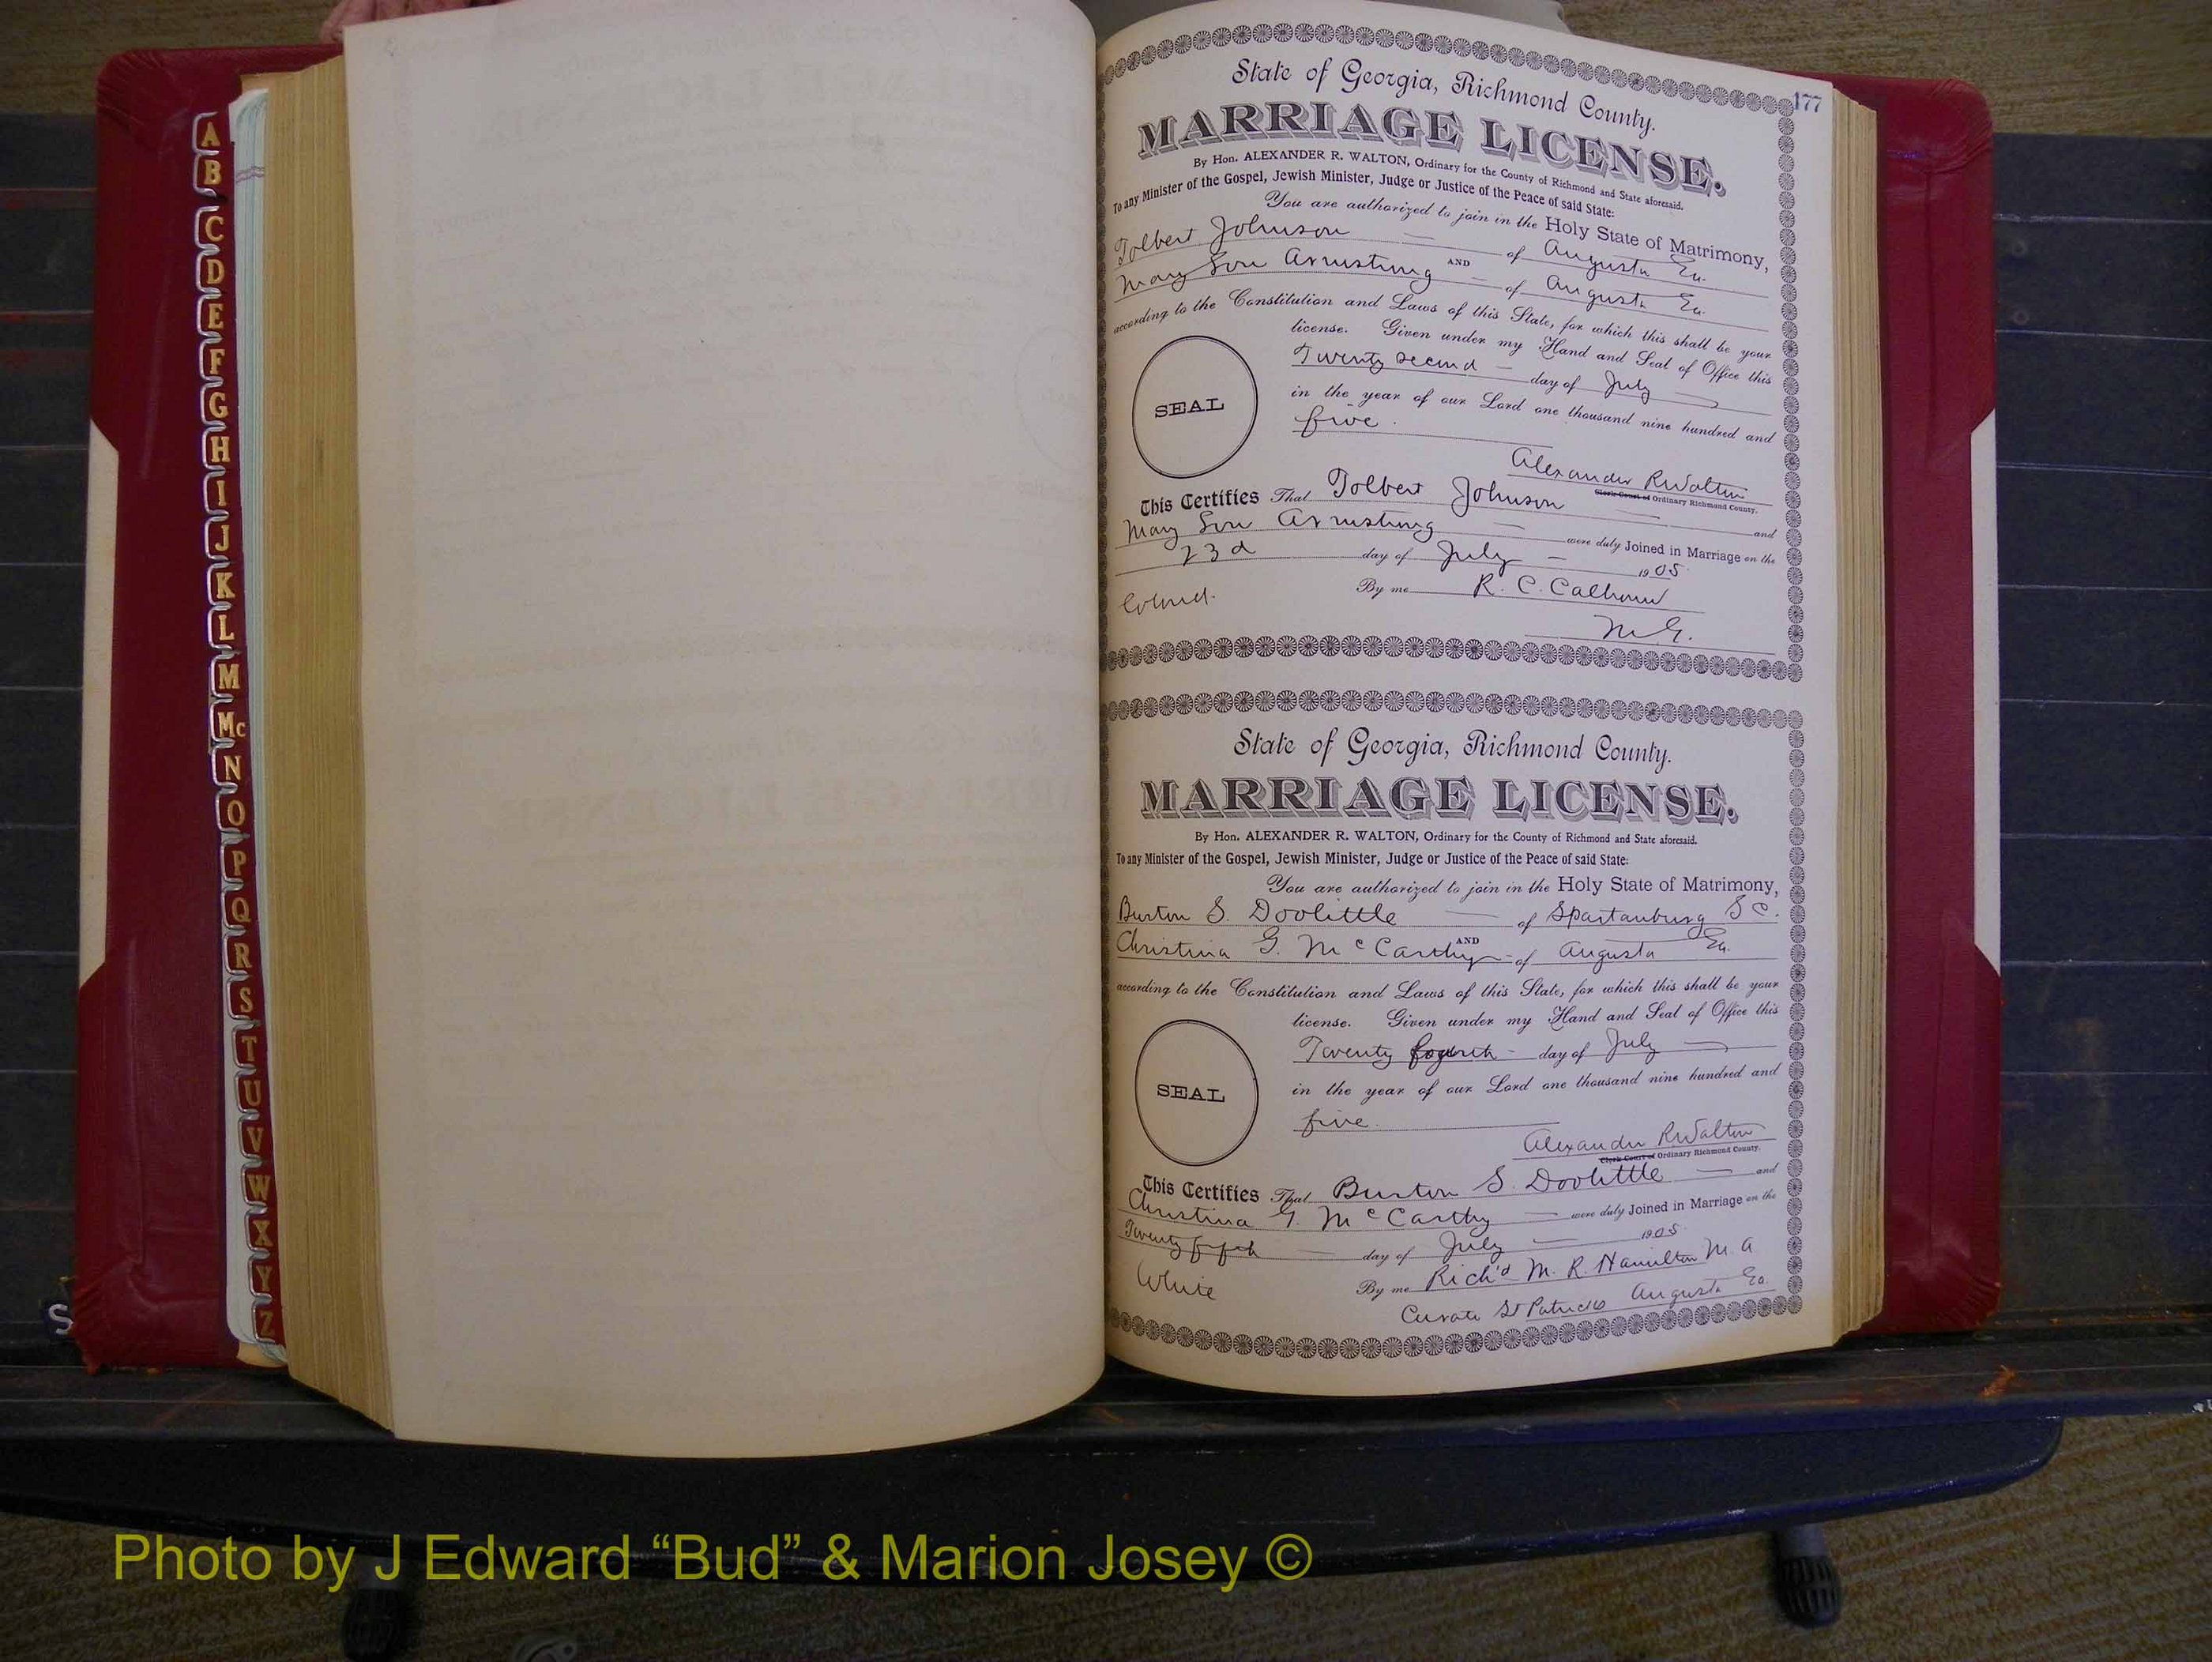 A
B
C
D
E
F
G
H
I
J
K
L
M
Mc
N
O
P
Q
R
S
T
U
V
W
X
Y
Z
177
State of Georgia, Richmond County.
MARRIAGE LICENSE.
By Hon. ALEXANDER R. WALTON, Ordinary for the County of Richmond and State aforesaid.
To any Minister of the Gospel, Jewish Minister, Judge or Justice of the Peace of said State:
You are authorized to join in the Holy State of Matrimony,
Tolbert Johnson — of Augusta Ga.
AND
Mary Lou Armstrong — of Augusta Ga.
according to the Constitution and Laws of this State, for which this shall be your
license. Given under my Hand and Seal of Office this
Twenty second — day of July
in the year of our Lord one thousand nine hundred and
five.
SEAL
Alexander R Walton
Clerk Court of Ordinary Richmond County.
This Certifies That Tolbert Johnson — and
Mary Lou Armstrong — were duly Joined in Marriage on the
23d day of July — 1905
Colored. By me R. C. Calhoun
M.G.
State of Georgia, Richmond County.
MARRIAGE LICENSE.
By Hon. ALEXANDER R. WALTON, Ordinary for the County of Richmond and State aforesaid.
To any Minister of the Gospel, Jewish Minister, Judge or Justice of the Peace of said State:
You are authorized to join in the Holy State of Matrimony,
Burton S. Doolittle — of Spartanburg S C.
AND
Christina G. McCarthy — of Augusta Ga.
according to the Constitution and Laws of this State, for which this shall be your
license. Given under my Hand and Seal of Office this
Twenty fourth — day of July
in the year of our Lord one thousand nine hundred and
five.
SEAL
Alexander R Walton
Clerk Court of Ordinary Richmond County.
This Certifies That Burton S. Doolittle — and
Christina G. McCarthy — were duly Joined in Marriage on the
Twenty fifth — day of July — 1905
White By me Rich'd M. R. Hamilton M. A
Curate St Patricks Augusta Ga.
Photo by J Edward “Bud” & Marion Josey ©